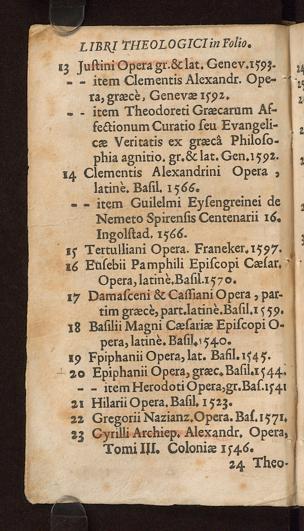 LIBRI THEOLOGICI in Folio.
13 Justini Opera gr.& lat. Genev.1593.
- - item Clementis Alexandr. Ope-
ra, græcè, Genevæ 1592.
- - item Theodoreti Græcarum Af-
fectionum Curatio ſeu Evangeli-
cæ Veritatis ex græcâ Philoſo-
phia agnitio. gr.& lat. Gen.1592.
14 Clementis Alexandrini Opera,
latinè. Baſil. 1566.
- - item Guilelmi Eyſengreinei de
Nemeto Spirenſis Centenarii 16.
Ingolſtad. 1566.
15 Tertulliani Opera. Franeker. 1597.
16 Euſebii Pamphili Epiſcopi Cæſar.
Opera, latinè.Baſil.1570.
17 Damaſceni & Caſſiani Opera, par-
tim græcè, part.latinè.Baſil.1559.
18 Baſilii Magni Cæſariæ Epiſcopi O-
pera, latinè. Baſil. 1540.
19 Fpiphanii Opera, lat. Baſil. 1545.
20 Epiphanii Opera, græc. Baſil.1544.
- - item Herodoti Opera,gr.Baſ.1541
21 Hilarii Opera. Baſil. 1523.
22 Gregorii Nazianz.Opera. Baſ.1571.
23 Cyrilli Archiep. Alexandr. Opera,
Tomi III. Coloniæ 1546.
24 Theo-